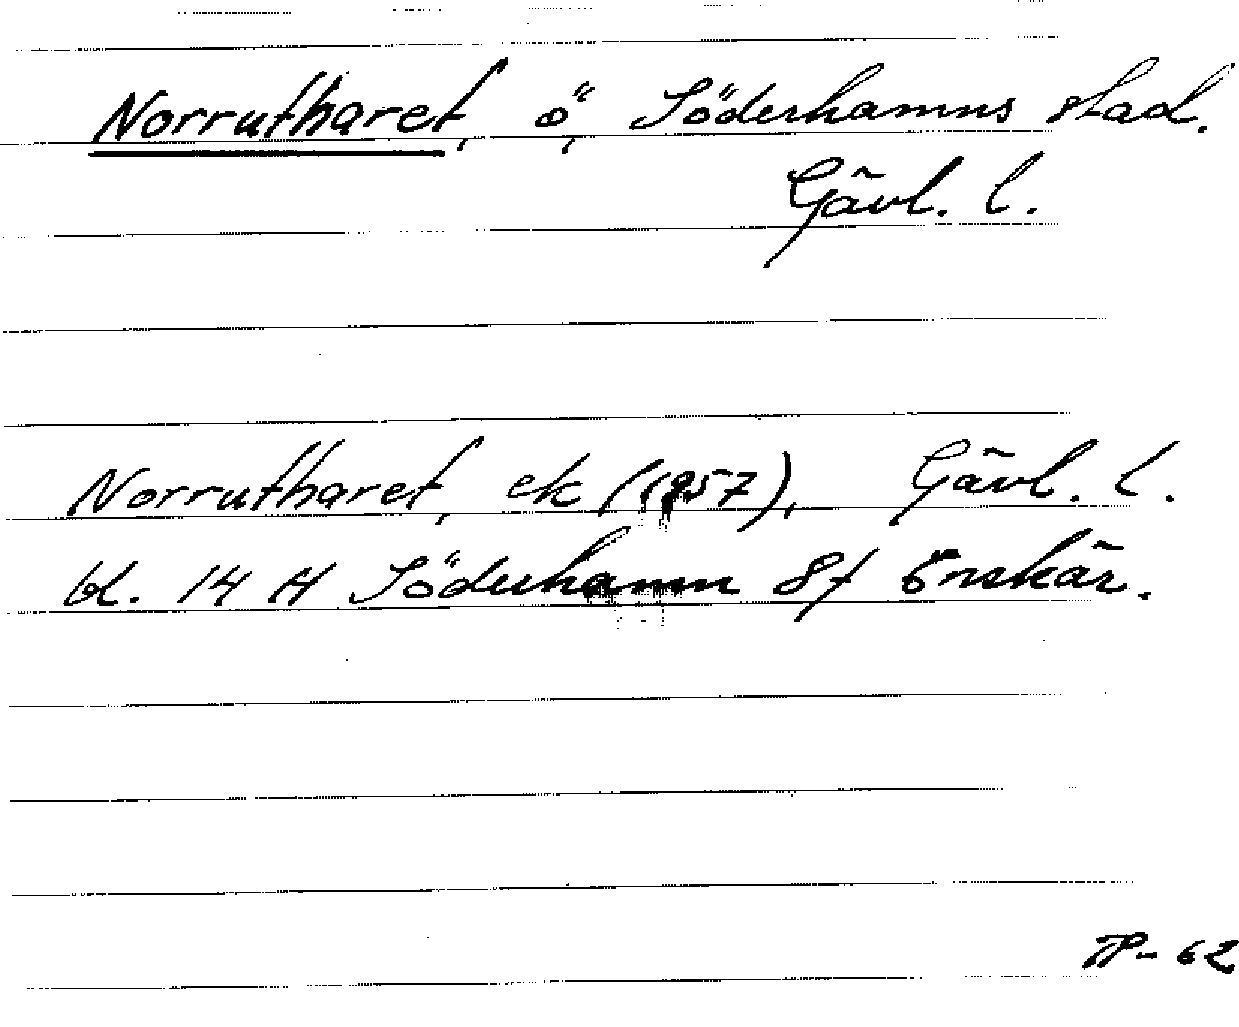 Norrutharet, ö, Söderhamns stad.
Gävl. l.
Norrutharet, ek (1957), Gävl. l.
bl. 14 H Söderhamn 8f Enskär.
TP-62